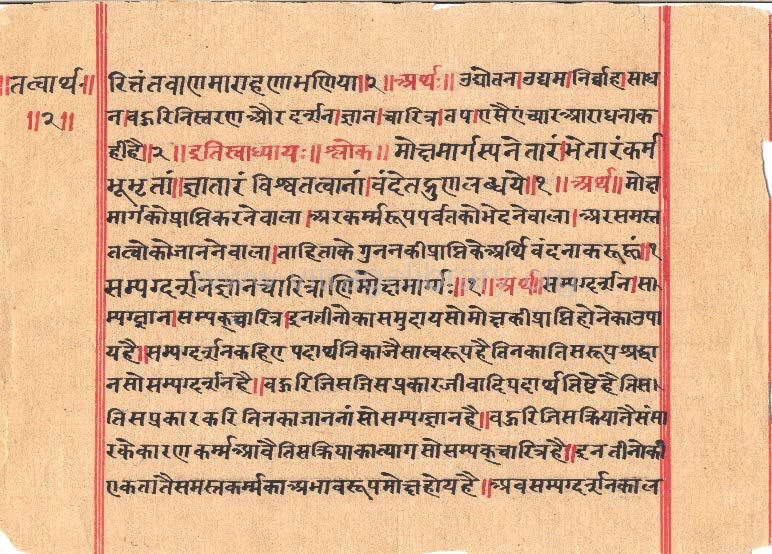 ॥तत्वार्थ॥
॥२॥
रित्तंतवाणमाराहणाभणिया॥२॥अर्थः॥उद्योवन।उद्यम।निर्वाह।साध
न।बहुरिनिस्तरणऔरदर्शन।ज्ञान।चारित्र।तप।एसैएंच्यारआराधनाक
हीहै।२॥इतिस्वाध्यायः॥श्लोक॥मोक्षमार्गस्यनेतारं।भेतारंकर्म
भूभृतां॥ज्ञातारं विश्वतत्वानां।वंदेतद्गुणलब्धये॥१॥अर्थ॥मोक्ष
मार्गकोप्राप्तिकरनेवाला।अरकर्म्मरूपपर्वतकोभेदनेवाला।अरसमस्त
तत्वोकोजाननेवाला।ताहिताकेगुननकीप्राप्तिकेअर्थिवंदनाकरूहूं॥१
सम्यग्दर्शनज्ञानचारित्राणिमोक्षमार्गः॥१॥अर्थ॥सम्यग्दर्शन।स।
म्यग्ज्ञान।सम्यक्चारित्र।इनतीनोकासमुदायसोमोक्षकीप्राप्तिहोनेकाउपा
यहै।सम्यग्दर्शनकहिए पदार्थनिकाजैसास्वरूपहैतिनकातिसरूपश्रद्धा
नसोसम्यग्दर्शनहै॥बहुरिजिसजिसप्रकारजीवादिपदार्थतिष्टेहैतिस।
तिसप्रकारकरितिनकाजाननांसोसम्यग्ज्ञानहै॥बहुरिजिसक्रियातैसंसा
रकेकारणकर्म्मआवैतिसक्रियाकात्यागसोसम्यक्चारित्रहै॥इनतीनोकी
एकतातैसमस्तकर्म्मकाअभावरूपमोक्षहोयहै॥अबसम्यग्दर्शनकाल